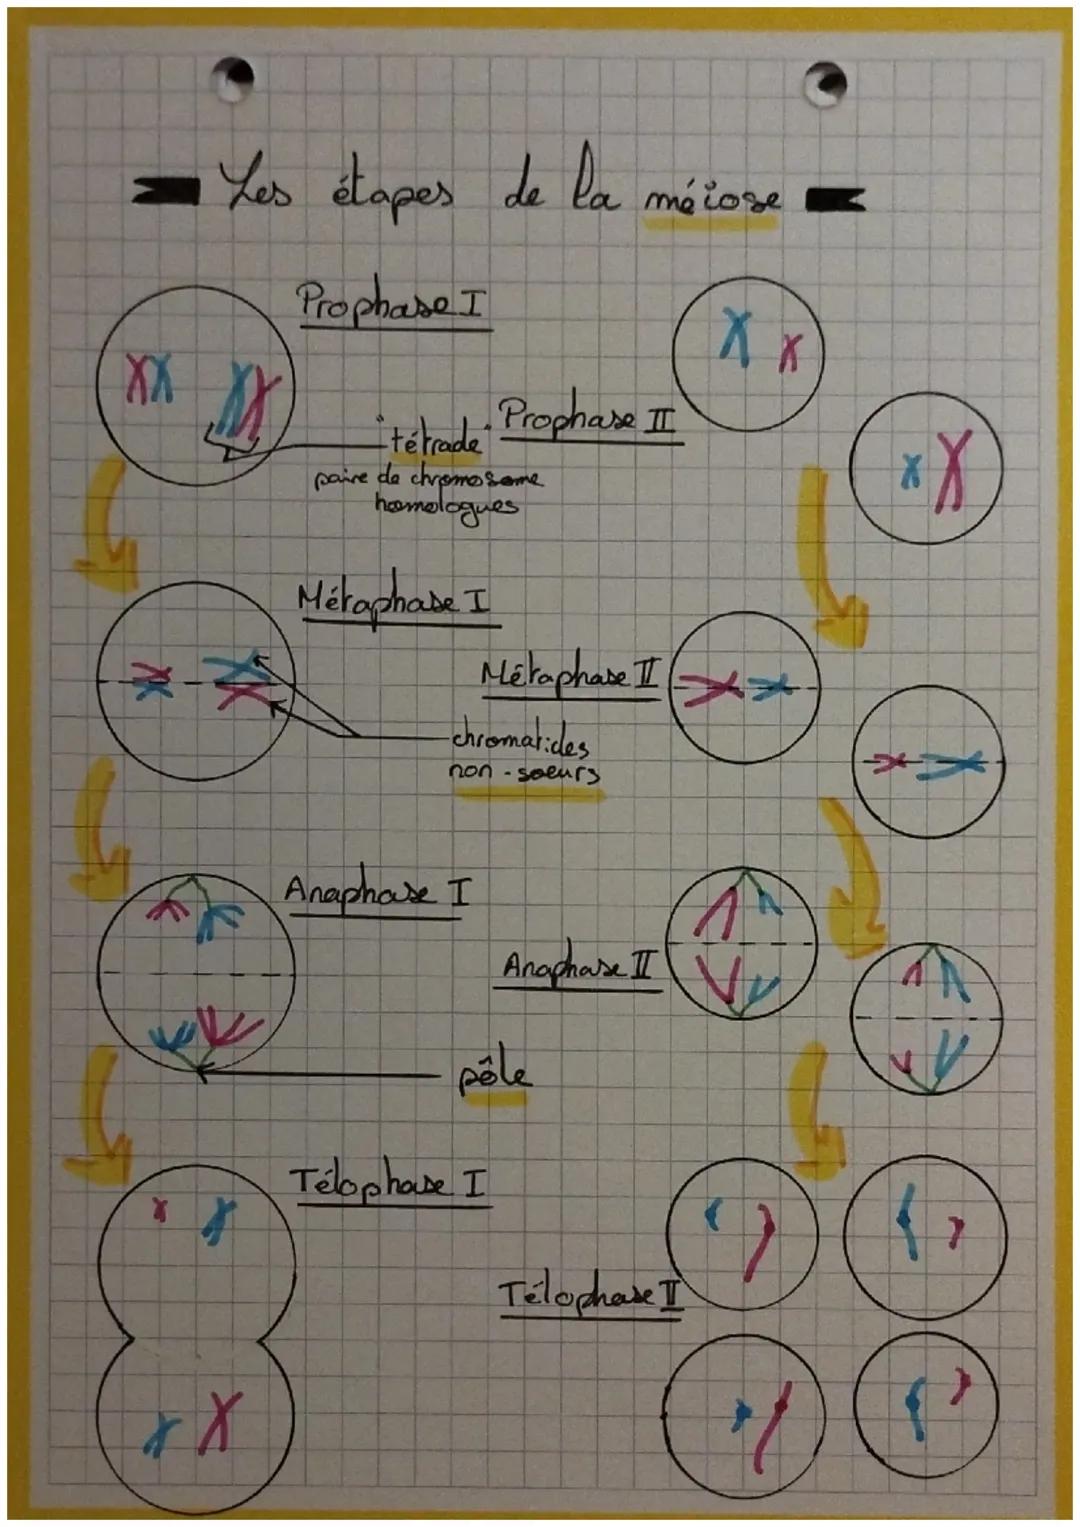 Les étapes de la méiose
Prophase I
"tétrade"
paire de chromosome
homologues
Métaphase I
chromatides
non-soeurs
Anaphase I
pôle
Télophase I
Prophase II
Métaphase II
Anaphase II
Télophase II